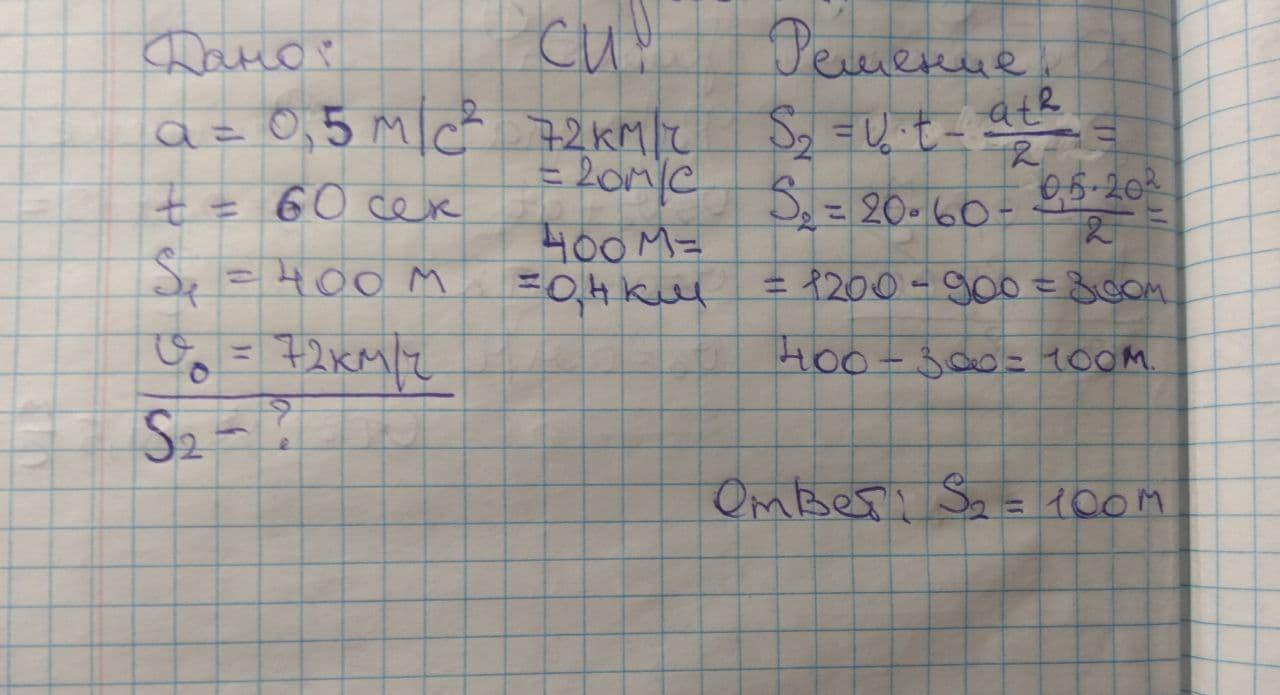 Дано:
a = 0,5 м/с²
t = 60 сек
S₁ = 400 м
v₀ = 72км/ч
S₂ - ?
СИ:
72км/ч
= 20м/с
400м=
=0,4км
Решение:
S₂ = v₀·t - at²/2 =
S₂ = 20·60 - 0,5·20²/2 =
= 1200 - 900 = 300м
400 - 300 = 100м.
Ответ: S₂ = 100м